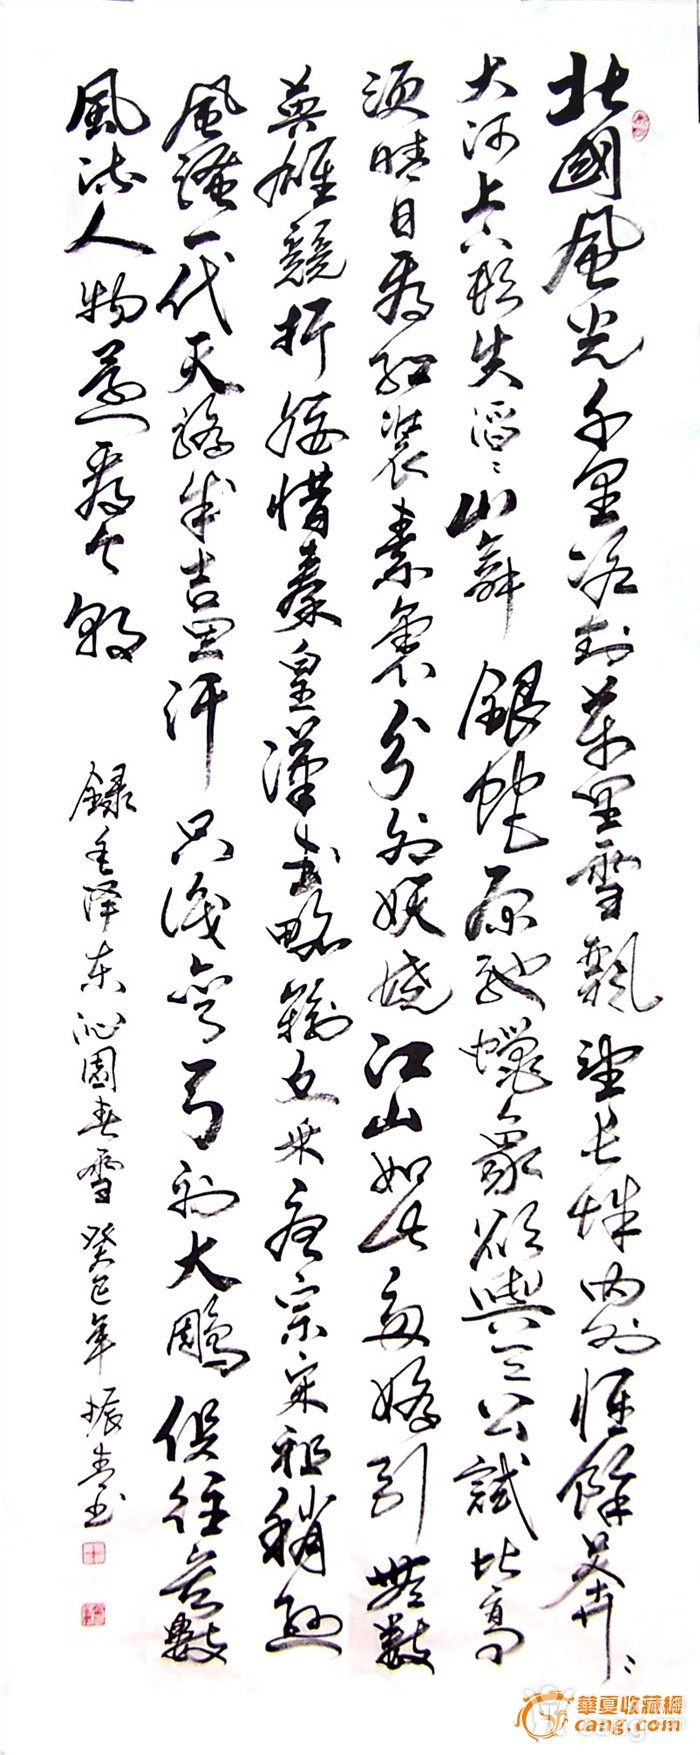 北國風光千里冰封萬里雪飄望長城内外惟餘莽〻
大河上下頓失滔〻山舞銀蛇原馳蠟象欲與天公試比高
須晴日看紅裝素裹分外妖嬈江山如此多嬌引無數
英雄競折腰惜秦皇漢武略輸文采唐宗宋祖稍遜
風騷一代天驕成吉思汗只識彎弓射大鵰俱往矣數
風流人物還看今朝
錄毛泽东沁園春雪癸巳年振书
華夏收藏網
cang.com